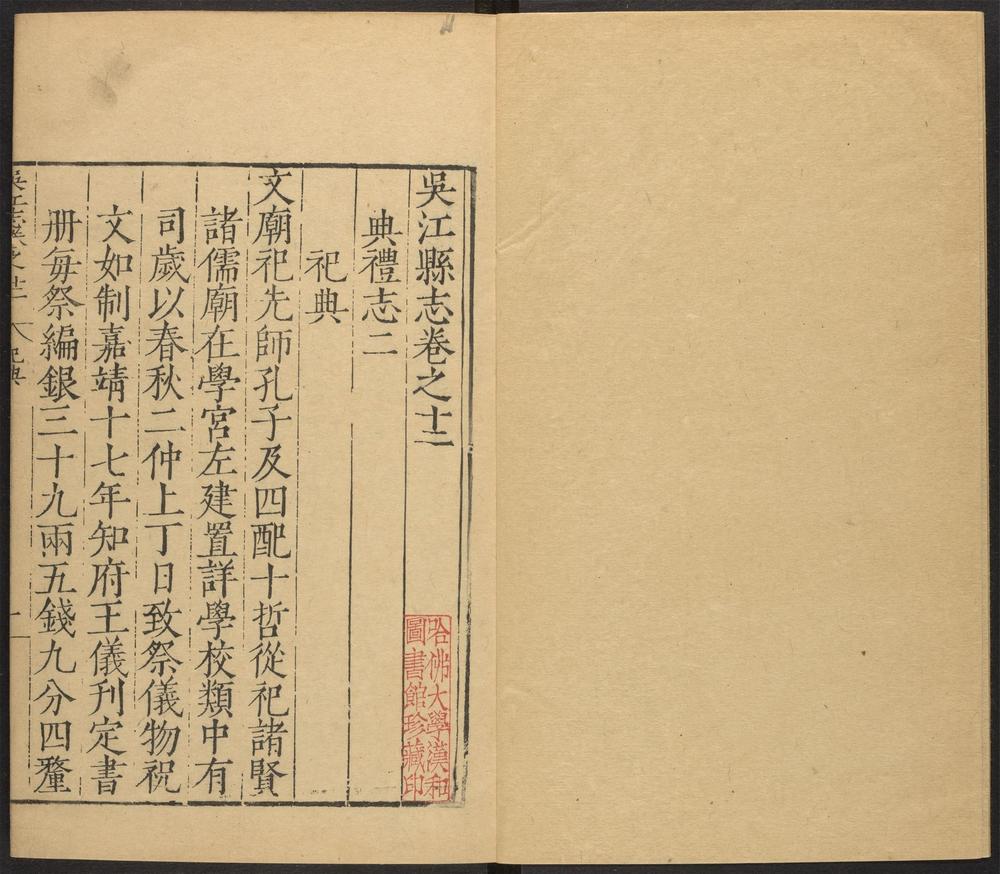 吳江縣志卷之十二
典禮志二
祀典
文廟祀先師孔子及四配十哲從祀諸賢
諸儒廟在學宮左建置詳學校類中有
司歲以春秋二仲上丁日致祭儀物祝
文如制嘉靖十七年知府王儀刊定書
册每祭編銀三十九兩五錢九分四釐
祀典
一
哈佛大學漢和
圖書館珍藏印